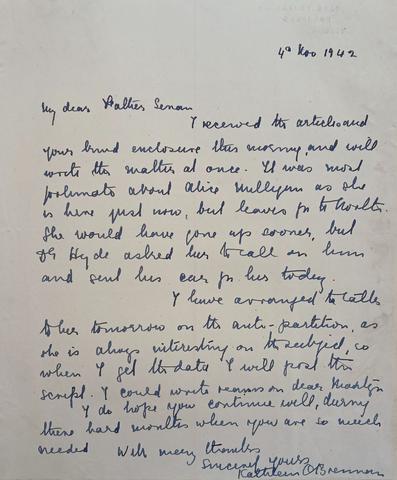 4th Nov 1942
My dear Father Senan
I received the article and
your kind enclosure this morning, and will
write the matter at once. It was most
fortunate about Alice Milligan as she
is here just now, but leaves for the North.
She would have gone up sooner, but
Dr Hyde asked her to call on him
and sent his car for her today.
I have arranged to talk
to her tomorrow on the anti-partition, as
she is always interesting on the subject, so
when I get the data I will post the
script. I could write reams on dear Martyn
I do hope you continue well, during
these hard months when you are so much
needed With many thanks
Sincerely yours
Kathleen O'Brennan